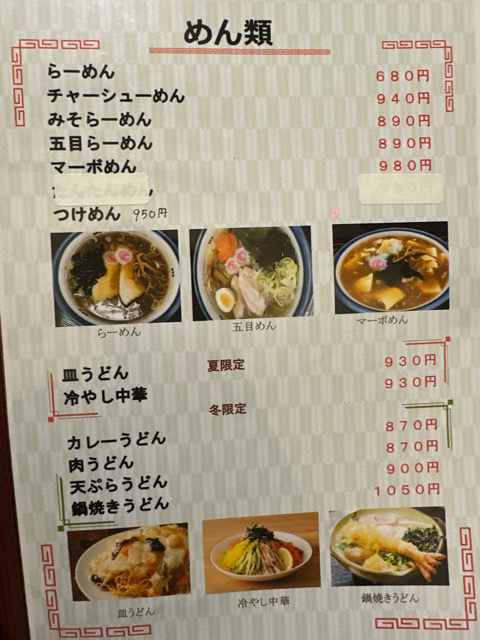 めん類
らーめん 680円
チャーシューめん 940円
みそらーめん 890円
五目らーめん 890円
マーボめん 980円
たんたんめん
つけめん 950円
らーめん 五目めん マーボめん
夏限定
皿うどん 930円
冷やし中華 930円
冬限定
カレーうどん 870円
肉うどん 870円
天ぷらうどん 900円
鍋焼きうどん 1050円
皿うどん 冷やし中華 鍋焼きうどん